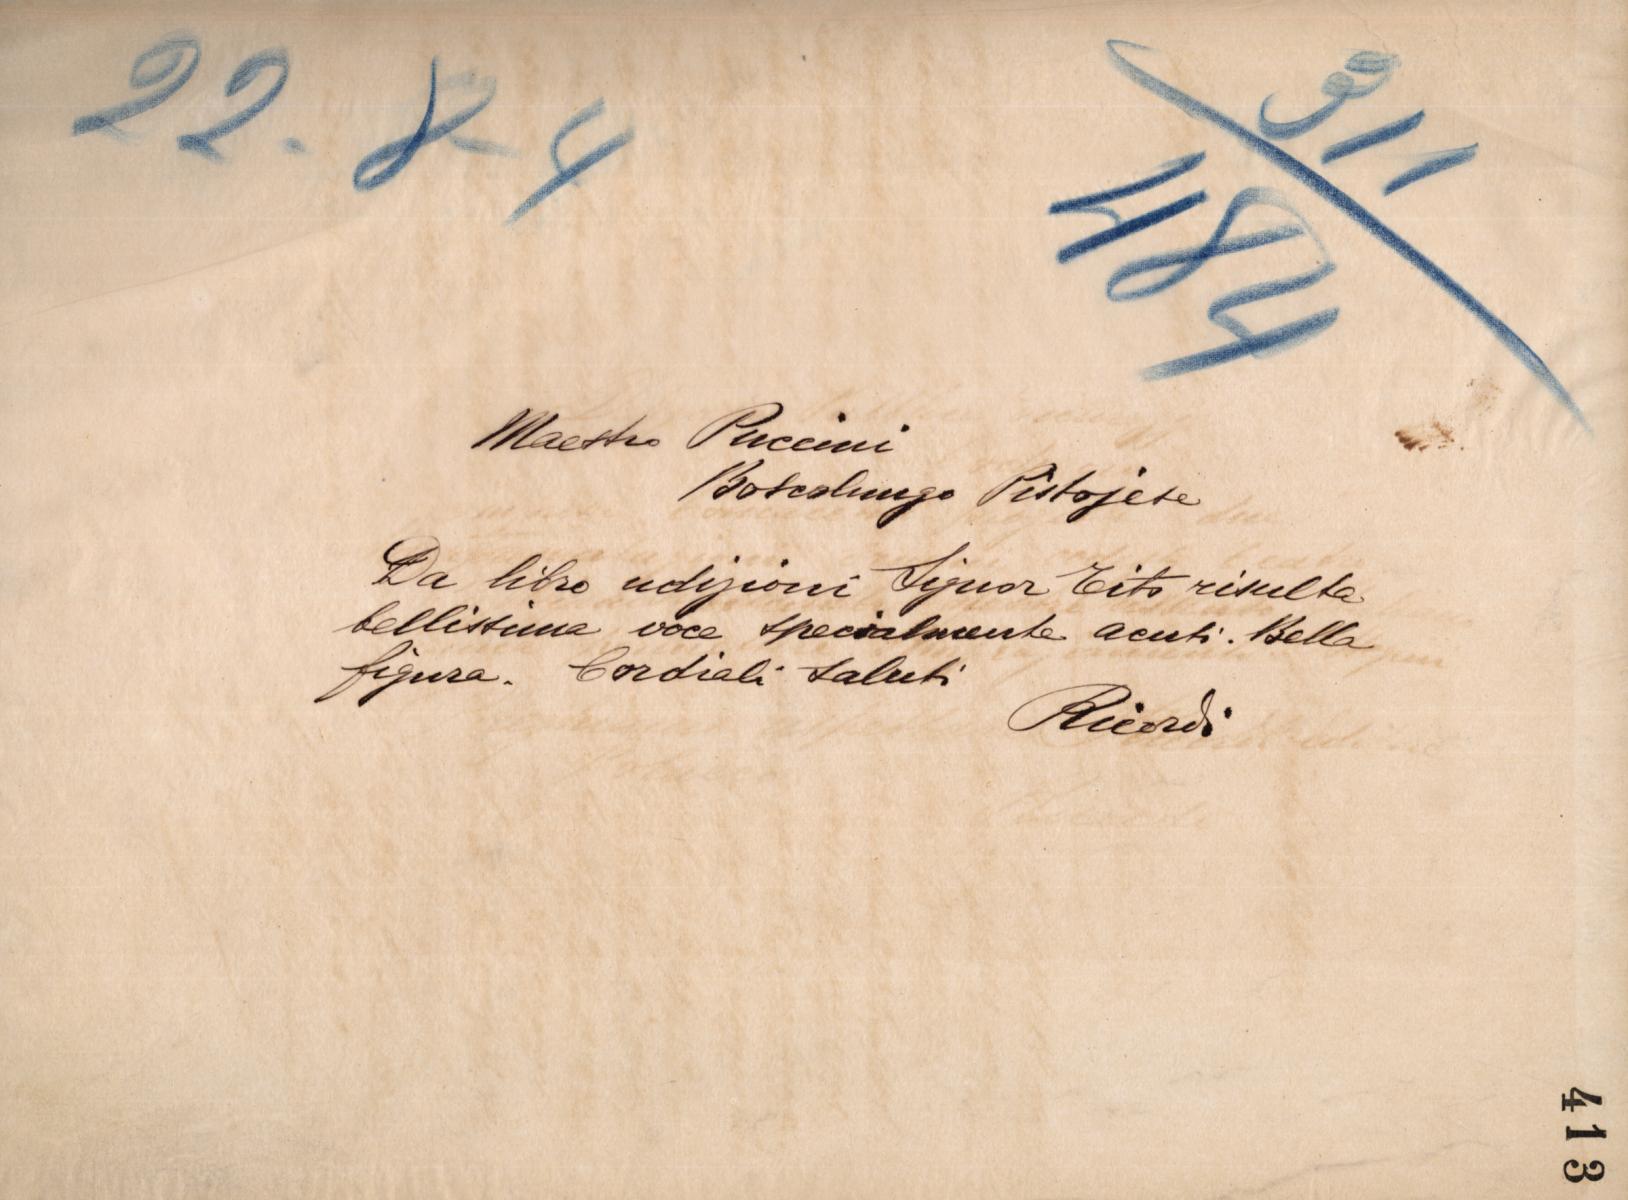 22.8-4
311
484
Maestro Puccini
Boscolungo Pistojese
Da libro udizioni Signor Tito risulta
bellissima voce specialmente acuti. Bella
figura. Cordiali saluti
Ricordi
413